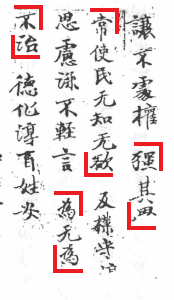 讓不處權强其骨
常使民无知无欲反樸守
思慮深不輕言為无為
不治德化淳百姓安